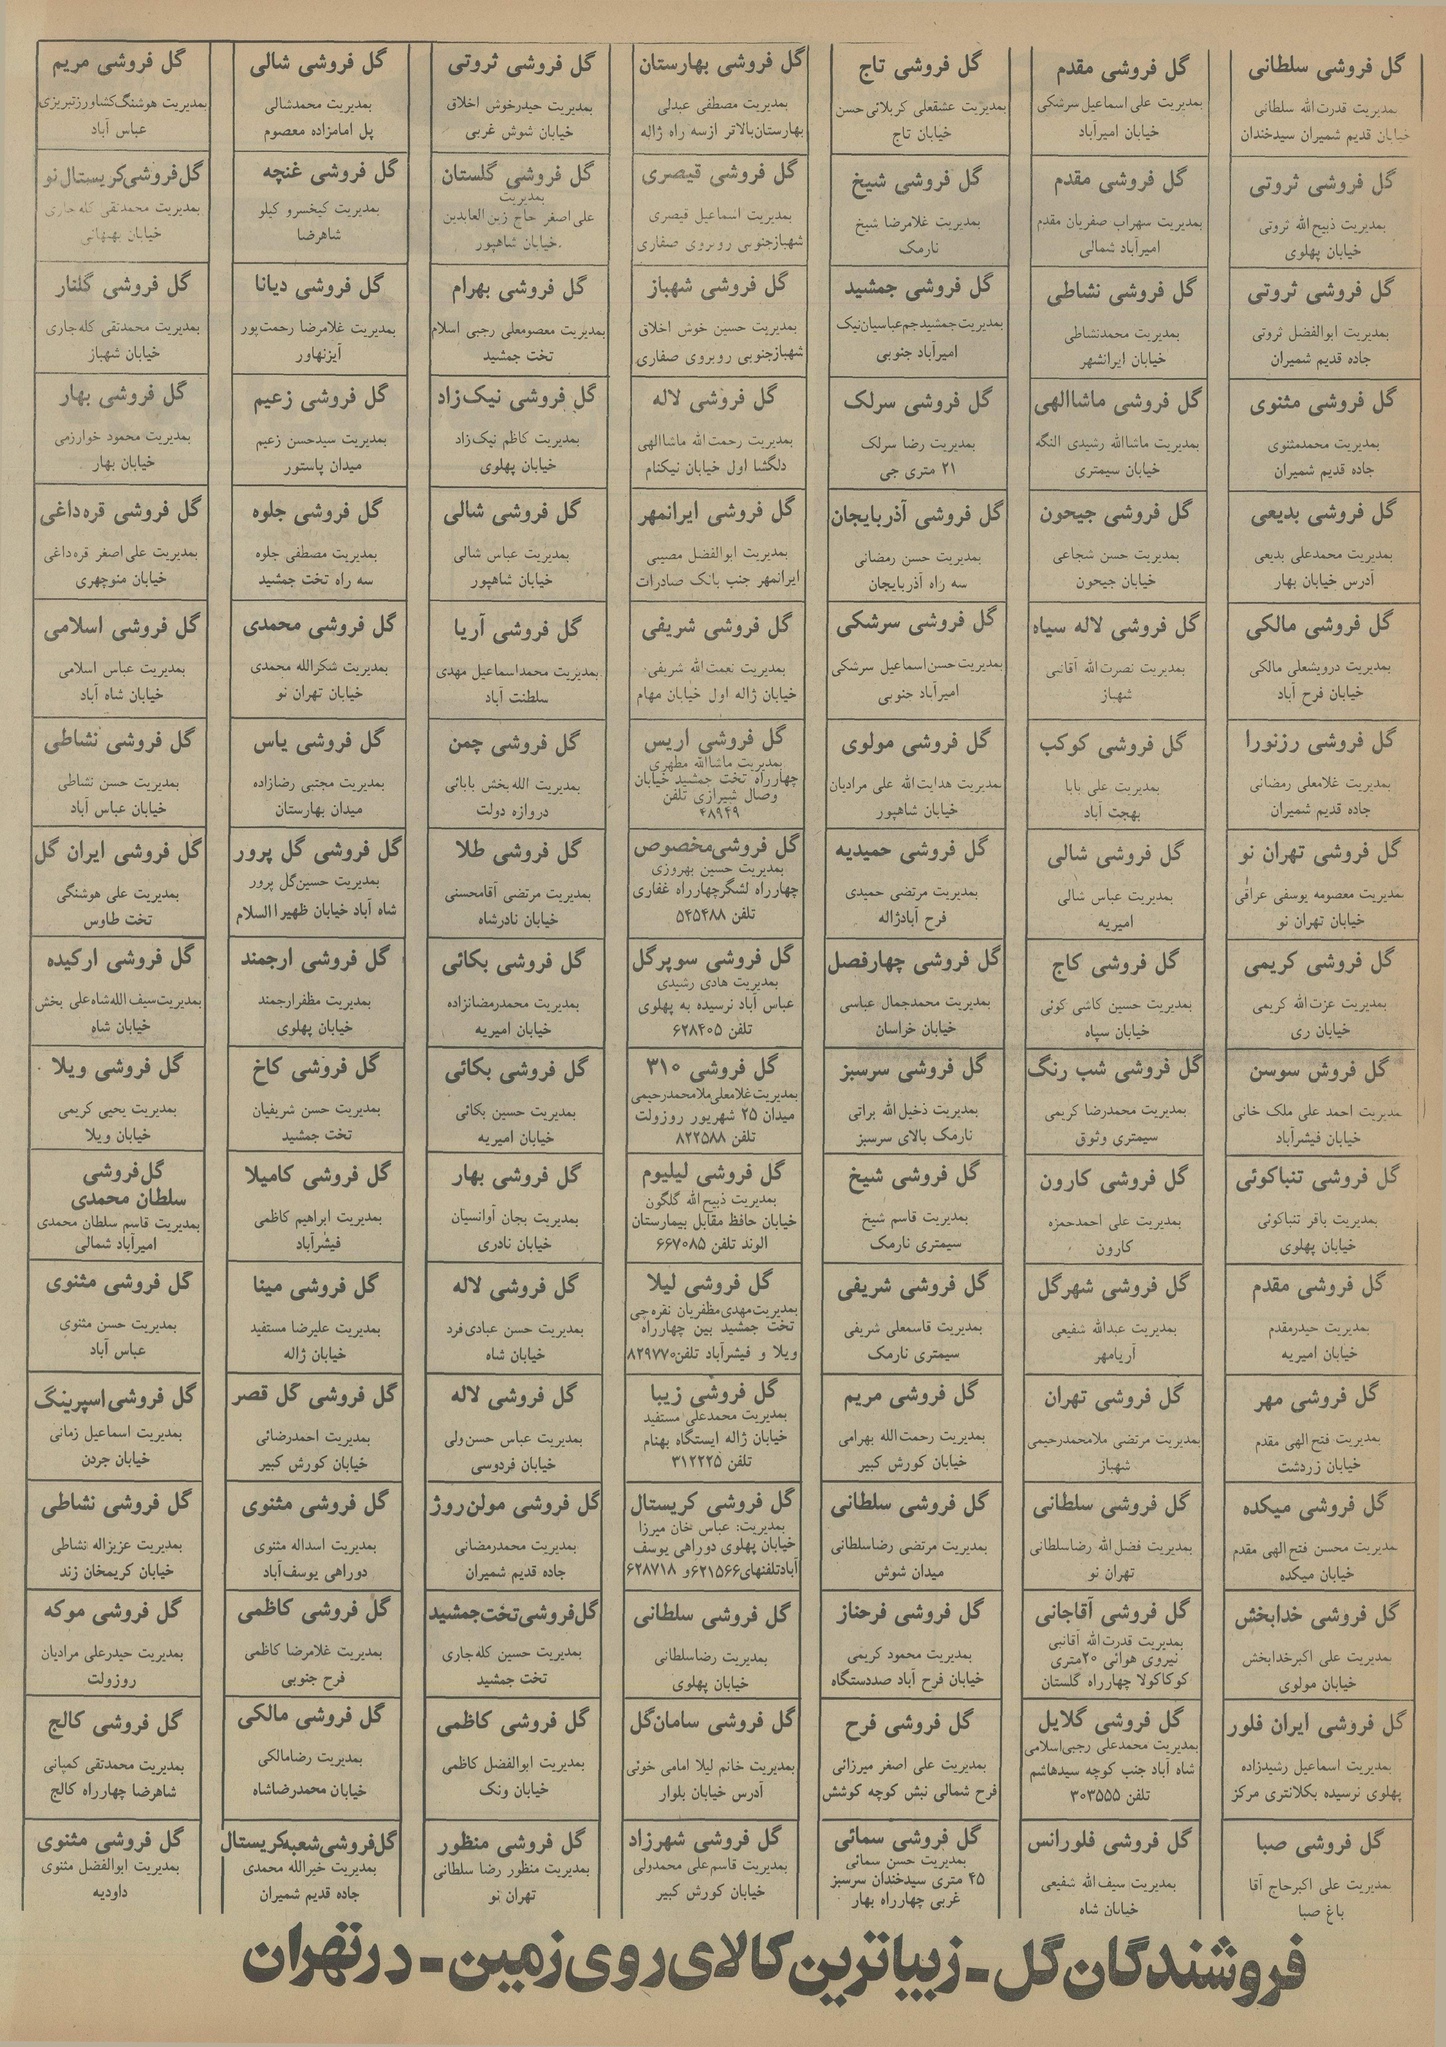 گل فروشی سلطانی
بمدیریت قدرت الله سلطانی
خیابان قدیم شمیران سیدخندان
گل فروشی ثروتی
بمدیریت ذبیح الله ثروتی
خیابان پهلوی
گل فروشی ثروتی
بمدیریت ابوالفضل ثروتی
جاده قدیم شمیران
گل فروشی مثنوی
بمدیریت محمدمثنوی
جاده قدیم شمیران
گل فروشی بدیعی
بمدیریت محمدعلی بدیعی
آدرس خیابان بهار
گل فروشی مالکی
بمدیریت درویشعلی مالکی
خیابان فرح آباد
گل فروشی رزنورا
بمدیریت غلامعلی رمضانی
جاده قدیم شمیران
گل فروشی تهران نو
بمدیریت معصومه یوسفی عراقی
خیابان تهران نو
گل فروشی کریمی
بمدیریت عزت الله کریمی
خیابان ری
گل فروش سوسن
بمدیریت احمد علی ملک خانی
خیابان فیشرآباد
گل فروشی تنباکوئی
بمدیریت باقر تنباکوئی
خیابان پهلوی
گل فروشی مقدم
بمدیریت حیدرمقدم
خیابان امیریه
گل فروشی مهر
بمدیریت فتح الهی مقدم
خیابان زردشت
گل فروشی میکده
بمدیریت محسن فتح الهی مقدم
خیابان میکده
گل فروشی خدابخش
بمدیریت علی اکبرخدابخش
خیابان مولوی
گل فروشی ایران فلور
بمدیریت اسماعیل رشیدزاده
پهلوی نرسیده بکلانتری مرکز
گل فروشی صبا
بمدیریت علی اکبرحاج آقا
باغ صبا
گل فروشی مقدم
بمدیریت علی اسماعیل سرشکی
خیابان امیرآباد
گل فروشی مقدم
بمدیریت سهراب صفریان مقدم
امیرآباد شمالی
گل فروشی نشاطی
بمدیریت محمدنشاطی
خیابان ایرانشهر
گل فروشی ماشاالهی
بمدیریت ماشاالله رشیدی النگه
خیابان سیمتری
گل فروشی جیحون
بمدیریت حسن شجاعی
خیابان جیحون
گل فروشی لاله سیاه
بمدیریت نصرت الله آقانبی
شهباز
گل فروشی کوکب
بمدیریت علی بابا
بهجت آباد
گل فروشی شالی
بمدیریت عباس شالی
امیریه
گل فروشی کاج
بمدیریت حسین کاشی کوئی
خیابان سپاه
گل فروشی شب رنگ
بمدیریت محمدرضا کریمی
سیمتری وثوق
گل فروشی کارون
بمدیریت علی احمدحمزه
کارون
گل فروشی شهرگل
بمدیریت عبدالله شفیعی
آریامهر
گل فروشی تهران
بمدیریت مرتضی ملامحمدرحیمی
شهباز
گل فروشی سلطانی
بمدیریت فضل الله رضاسلطانی
تهران نو
گل فروشی آقاجانی
بمدیریت قدرت الله آقانبی
نیروی هوائی ۲۰متری
کوکاکولا چهارراه گلستان
گل فروشی گلایل
بمدیریت محمدعلی رجبی اسلامی
شاه آباد جنب کوچه سیدهاشم
تلفن ۳۰۳۵۵۵
گل فروشی فلورانس
بمدیریت سیف الله شفیعی
خیابان شاه
گل فروشی تاج
بمدیریت عشقعلی کربلائی حسن
خیابان تاج
گل فروشی شیخ
بمدیریت غلامرضا شیخ
نارمک
گل فروشی جمشید
بمدیریت جمشیدجم عباسیان نیک
امیرآباد جنوبی
گل فروشی سرلک
بمدیریت رضا سرلک
۲۱ متری جی
گل فروشی آذربایجان
بمدیریت حسن رمضانی
سه راه آذربایجان
گل فروشی سرشکی
بمدیریت حسن اسماعیل سرشکی
امیرآباد جنوبی
گل فروشی مولوی
بمدیریت هدایت الله علی مرادیان
خیابان شاهپور
گل فروشی حمیدیه
بمدیریت مرتضی حمیدی
فرح آبادژاله
گل فروشی چهارفصل
بمدیریت محمدجمال عباسی
خیابان خراسان
گل فروشی سرسبز
بمدیریت ذخیل الله براتی
نارمک بالای سرسبز
گل فروشی شیخ
بمدیریت قاسم شیخ
سیمتری نارمک
گل فروشی شریفی
بمدیریت قاسمعلی شریفی
سیمتری نارمک
گل فروشی مریم
بمدیریت رحمت الله بهرامی
خیابان کورش کبیر
گل فروشی سلطانی
بمدیریت مرتضی رضاسلطانی
میدان شوش
گل فروشی فرحناز
بمدیریت محمود کریمی
خیابان فرح آباد صددستگاه
گل فروشی فرح
بمدیریت علی اصغر میرزائی
فرح شمالی نبش کوچه کوشش
گل فروشی سمائی
بمدیریت حسن سمائی
۴۵ متری سیدخندان سرسبز
غربی چهارراه بهار
گل فروشی بهارستان
بمدیریت مصطفی عبدلی
بهارستان بالاتر ازسه راه ژاله
گل فروشی قیصری
بمدیریت اسماعیل قیصری
شهبازجنوبی روبروی صفاری
گل فروشی شهباز
بمدیریت حسین خوش اخلاق
شهبازجنوبی روبروی صفاری
گل فروشی لاله
بمدیریت رحمت الله ماشاالهی
دلگشا اول خیابان نیکنام
گل فروشی ایرانمهر
بمدیریت ابوالفضل مصیبی
ایرانمهر جنب بانک صادرات
گل فروشی شریفی
بمدیریت نعمت الله شریفی
خیابان ژاله اول خیابان مهام
گل فروشی اریس
بمدیریت ماشاالله مطهری
چهارراه تخت جمشید خیابان
وصال شیرازی تلفن
۴۸۹۴۹
گل فروشی مخصوص
بمدیریت حسین بهروزی
چهارراه لشگرچهارراه غفاری
تلفن ۵۴۵۴۸۸
گل فروشی سوپرگل
بمدیریت هادی رشیدی
عباس آباد نرسیده به پهلوی
تلفن ۶۲۸۴۰۵
گل فروشی ۳۱۰
بمدیریت غلامعلی ملامحمدرحیمی
میدان ۲۵ شهریور روزولت
تلفن ۸۲۲۵۸۸
گل فروشی لیلیوم
بمدیریت ذبیح الله گلگون
خیابان حافظ مقابل بیمارستان
الوند تلفن ۶۶۷۰۸۵
گل فروشی لیلا
بمدیریت مهدی مظفریان نقره چی
تخت جمشید بین چهارراه
ویلا و فیشرآباد تلفن۸۲۹۷۷۰
گل فروشی زیبا
بمدیریت محمدعلی مستفید
خیابان ژاله ایستگاه بهنام
تلفن ۳۱۲۲۲۵
گل فروشی کریستال
بمدیریت: عباس خان میرزا
خیابان پهلوی دوراهی یوسف
آبادتلفنهای۶۲۱۵۶۶و ۶۲۸۷۱۸
گل فروشی سلطانی
بمدیریت رضاسلطانی
خیابان پهلوی
گل فروشی سامان گل
بمدیریت خانم لیلا امامی خوئی
آدرس خیابان بلوار
گل فروشی شهرزاد
بمدیریت قاسم علی محمدولی
خیابان کورش کبیر
گل فروشی ثروتی
بمدیریت حیدرخوش اخلاق
خیابان شوش غربی
گل فروشی گلستان
بمدیریت
علی اصغر حاج زین العابدین
خیابان شاهپور
گل فروشی بهرام
بمدیریت معصومعلی رجبی اسلام
تخت جمشید
گل فروشی نیک زاد
بمدیریت کاظم نیک زاد
خیابان پهلوی
گل فروشی شالی
بمدیریت عباس شالی
خیابان شاهپور
گل فروشی آریا
بمدیریت محمداسماعیل مهدی
سلطنت آباد
گل فروشی چمن
بمدیریت الله بخش بابائی
دروازه دولت
گل فروشی طلا
بمدیریت مرتضی آقامحسنی
خیابان نادرشاه
گل فروشی بکائی
بمدیریت محمدرمضانزاده
خیابان امیریه
گل فروشی بکائی
بمدیریت حسین بکائی
خیابان امیریه
گل فروشی بهار
بمدیریت بجان آوانسیان
خیابان نادری
گل فروشی لاله
بمدیریت حسن عبادی فرد
خیابان شاه
گل فروشی لاله
بمدیریت عباس حسن ولی
خیابان فردوسی
گل فروشی مولن روژ
بمدیریت محمدرمضانی
جاده قدیم شمیران
گل فروشی تخت جمشید
بمدیریت حسین کله جاری
تخت جمشید
گل فروشی کاظمی
بمدیریت ابوالفضل کاظمی
خیابان ونک
گل فروشی منظور
بمدیریت منظور رضا سلطانی
تهران نو
گل فروشی شالی
بمدیریت محمدشالی
پل امامزاده معصوم
گل فروشی غنچه
بمدیریت کیخسرو کیلو
شاهرضا
گل فروشی دیانا
بمدیریت غلامرضا رحمت پور
آیزنهاور
گل فروشی زعیم
بمدیریت سیدحسن زعیم
میدان پاستور
گل فروشی جلوه
بمدیریت مصطفی جلوه
سه راه تخت جمشید
گل فروشی محمدی
بمدیریت شکرالله محمدی
خیابان تهران نو
گل فروشی یاس
بمدیریت مجتبی رضازاده
میدان بهارستان
گل فروشی گل پرور
بمدیریت حسین گل پرور
شاه آباد خیابان ظهیرا السلام
گل فروشی ارجمند
بمدیریت مظفرارجمند
خیابان پهلوی
گل فروشی کاخ
بمدیریت حسن شریفیان
تخت جمشید
گل فروشی کامیلا
بمدیریت ابراهیم کاظمی
فیشرآباد
گل فروشی مینا
بمدیریت علیرضا مستفید
خیابان ژاله
گل فروشی گل قصر
بمدیریت احمدرضائی
خیابان کورش کبیر
گل فروشی مثنوی
بمدیریت اسداله مثنوی
دوراهی یوسف آباد
گل فروشی کاظمی
بمدیریت غلامرضا کاظمی
فرح جنوبی
گل فروشی مالکی
بمدیریت رضامالکی
خیابان محمدرضاشاه
گل فروشی شعبه کریستال
بمدیریت خیرالله محمدی
جاده قدیم شمیران
گل فروشی مریم
بمدیریت هوشنگ کشاورزتبریزی
عباس آباد
گل فروشی کریستال نو
بمدیریت محمدتقی کله جاری
خیابان بهبهانی
گل فروشی گلنار
بمدیریت محمدتقی کله جاری
خیابان شهباز
گل فروشی بهار
بمدیریت محمود خوارزمی
خیابان بهار
گل فروشی قره داغی
بمدیریت علی اصغر قره داغی
خیابان منوچهری
گل فروشی اسلامی
بمدیریت عباس اسلامی
خیابان شاه آباد
گل فروشی نشاطی
بمدیریت حسن نشاطی
خیابان عباس آباد
گل فروشی ایران گل
بمدیریت علی هوشنگی
تخت طاوس
گل فروشی ارکیده
بمدیریت سیف الله شاه علی بخش
خیابان شاه
گل فروشی ویلا
بمدیریت یحیی کریمی
خیابان ویلا
گل فروشی
سلطان محمدی
بمدیریت قاسم سلطان محمدی
امیرآباد شمالی
گل فروشی مثنوی
بمدیریت حسن مثنوی
عباس آباد
گل فروشی اسپرینگ
بمدیریت اسماعیل زمانی
خیابان جردن
گل فروشی نشاطی
بمدیریت عزیزاله نشاطی
خیابان کریمخان زند
گل فروشی موکه
بمدیریت حیدرعلی مرادیان
روزولت
گل فروشی کالج
بمدیریت محمدتقی کمپانی
شاهرضا چهارراه کالج
گل فروشی مثنوی
بمدیریت ابوالفضل مثنوی
داودیه
فروشندگان گل - زیباترین کالای روی زمین - در تهران